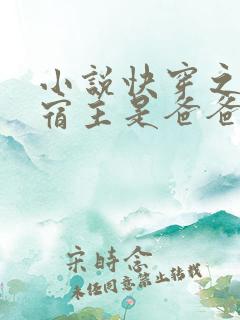 小說快穿之
宿主是爸爸
宋時念
未经同意禁止转载